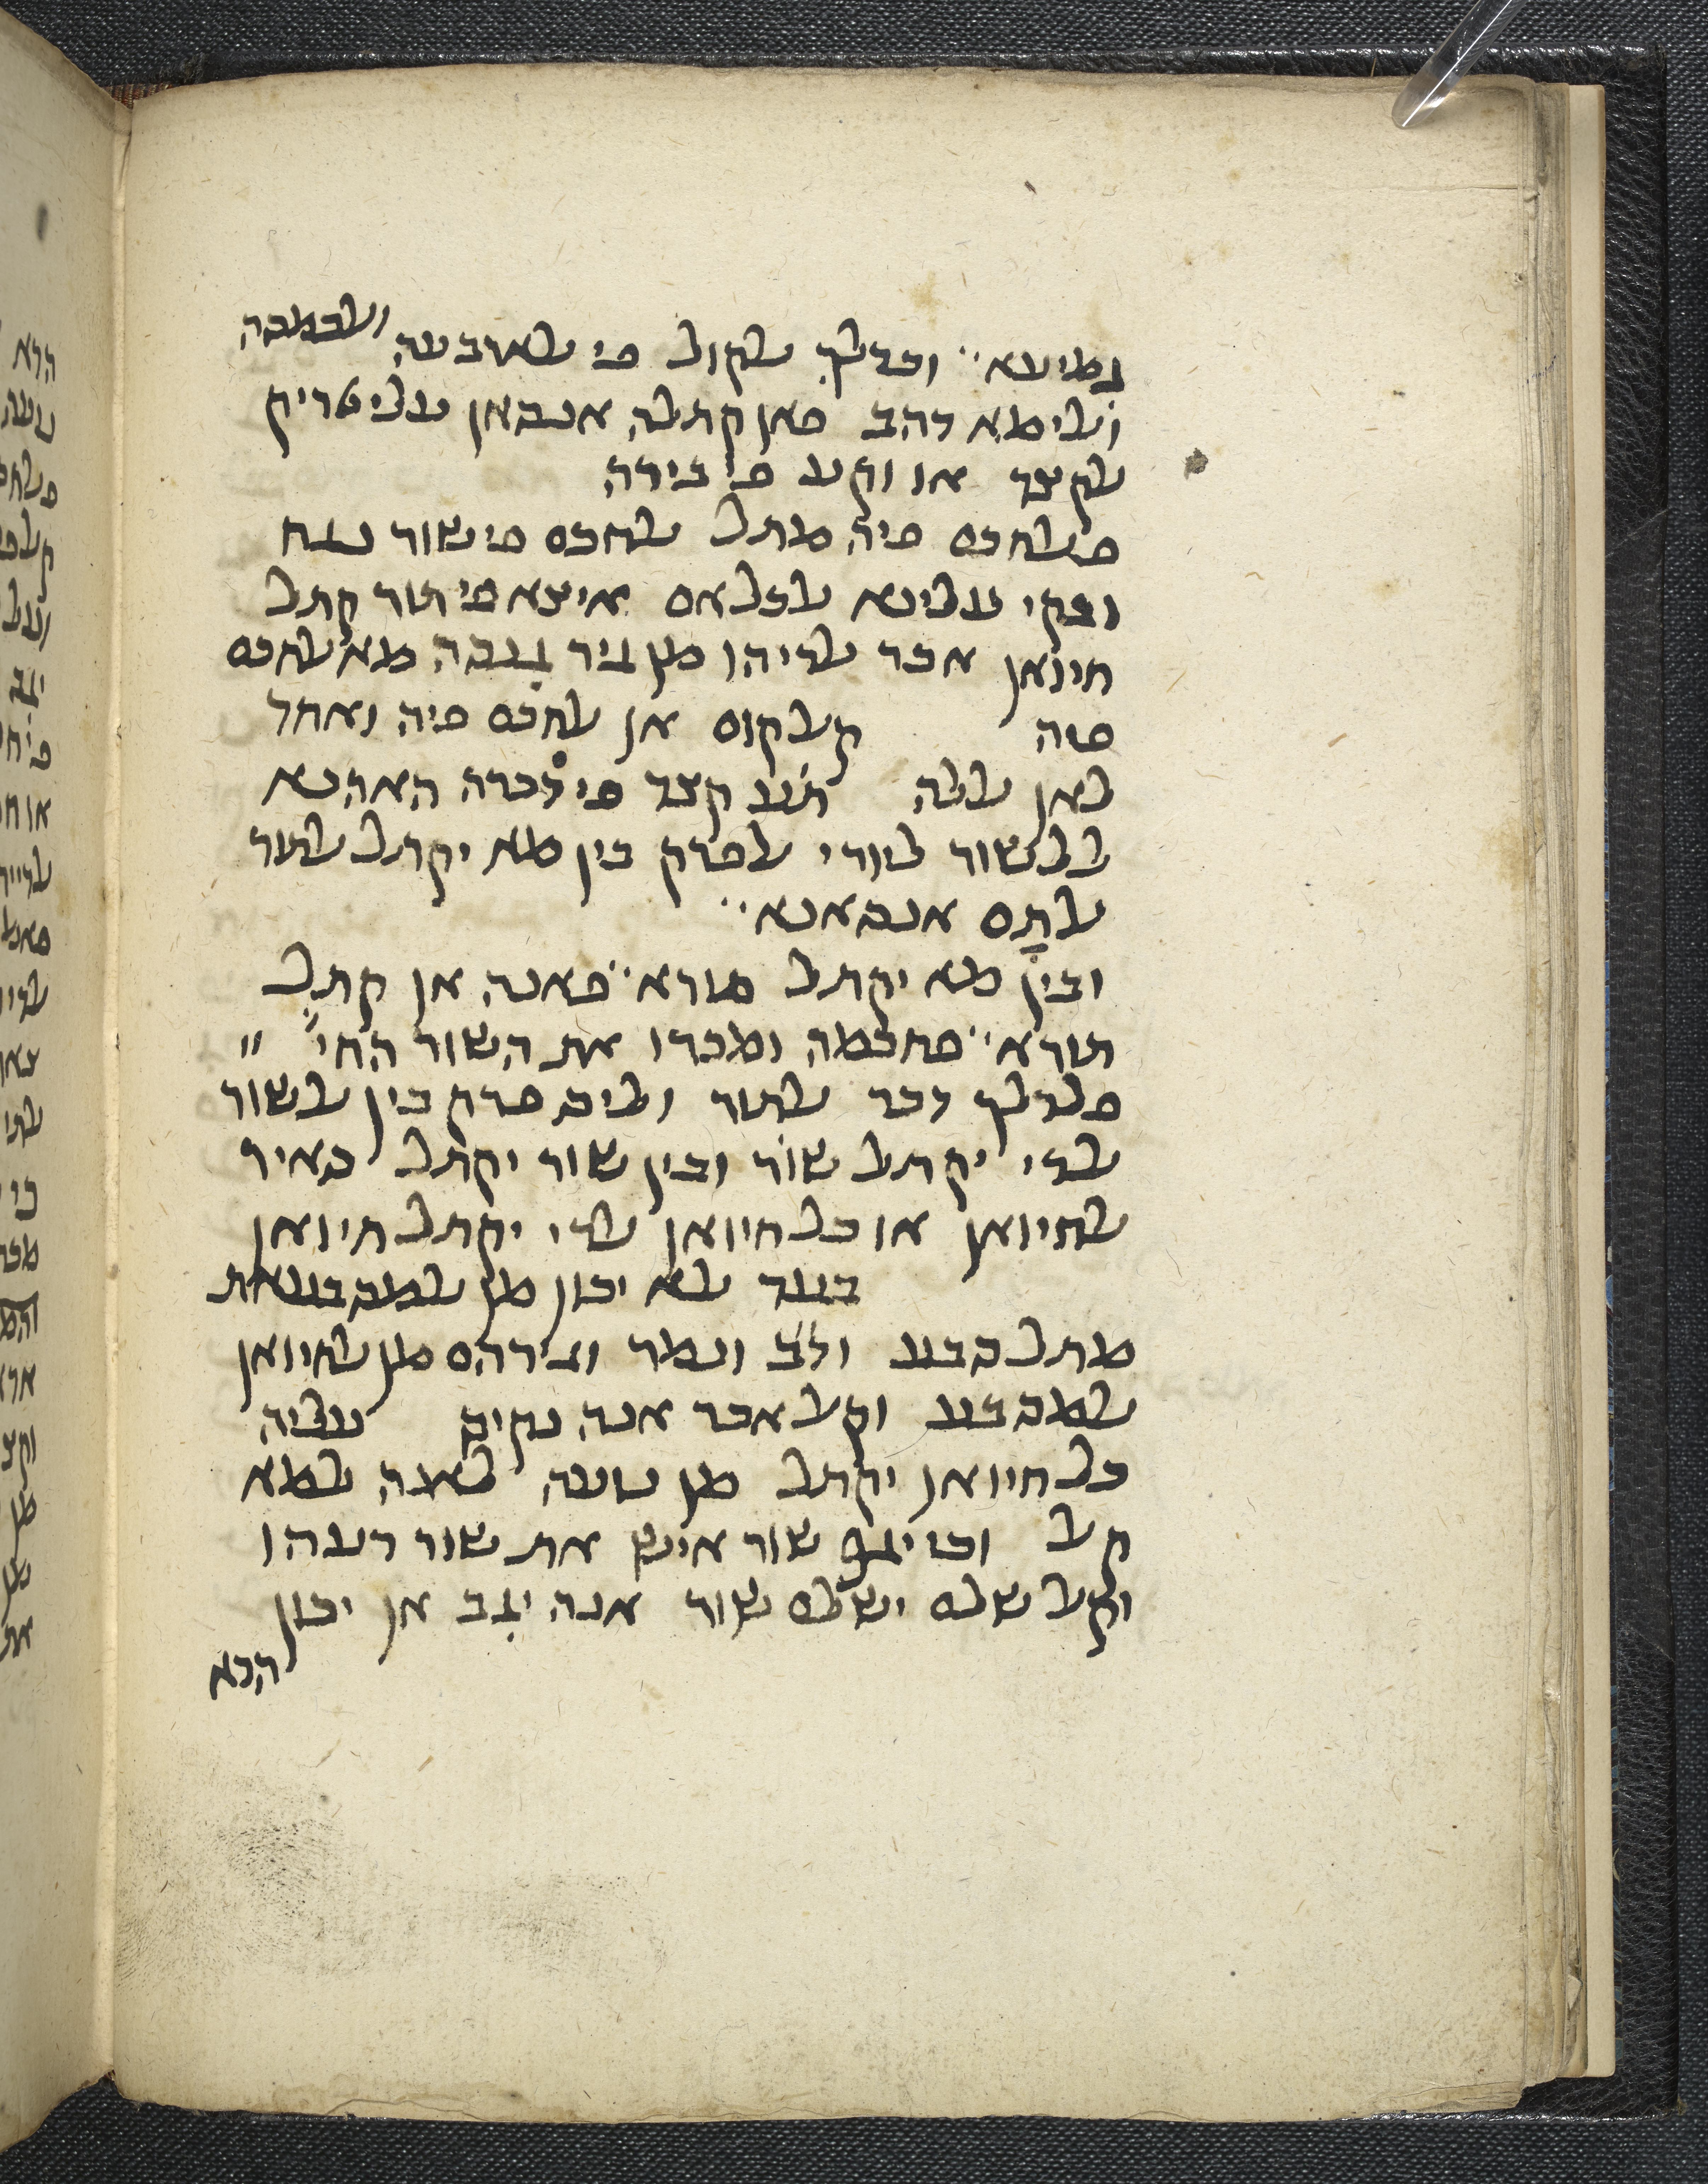 גמיעא¨ וכדלך אלקול פי אלארבעה ואלכמסה
ואלימא דהב פאן קתלה אנסאן עלי טריק
אלקצד או וקע פי בירה
פאלחכם פיה מתל אלחכם פי שור נגח
ובקי עלינא אלכלאם איצא פי תור קתל
חיואן אכר אלדי הו מן גיר גנסה מא אלחכם
פיה קאל קום אן אלחכם פיה ואחד
לאן אללה תע קצד פי דכרה האהנא
ללשור ליורי אלפרק בין מא יקתל אלתור
אלתם אנסאנא¨
ובין מא יקתל תורא¨ פאנה אן קתל
תורא¨ פחכמה ומכרו את השור החי ״
פלדלך דכר אלתור וליס פרק בין אלשור
אלדי יקתל שור ובין שור יקתל סאיר
אלחיואן או כל חיואן אלדי יקתל חיואן
בעד אלא יכון מן אלמסבעאת
מתל סבע ודב ונמר וגירהם מן אלחיואן
אלמסבע וקאל אכר אנה נקיס עליה
כל חיואן יקתל מן נועה לאנה למא
קאל וכי יגף שור איש את שור רעהו
וקאל שלם ישלם שור אנה יגב אן יכון
הכא